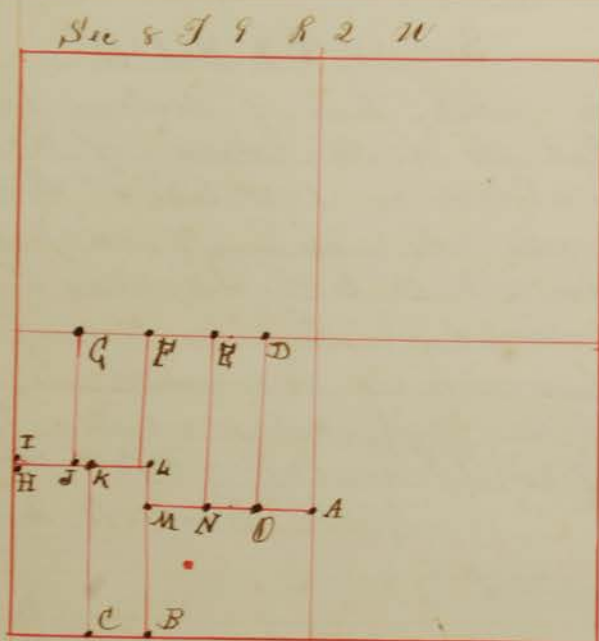 Sec 8 T 9 R 2 W
G F E D
I
H J K L
M N O A
C B